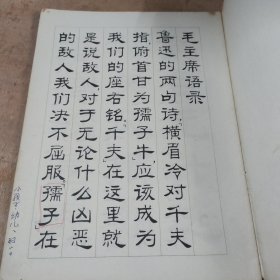 毛主席语录
鲁迅的两句诗,横眉冷对千夫
指俯首甘为孺子牛,应该成为
我们的座右铭,千夫在这里就
是说敌人对于无论什么凶恶
的敌人我们决不屈服,孺子在